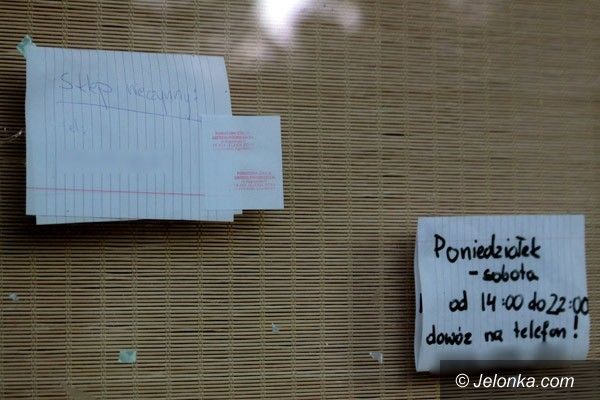 Sklep nieczynny:
tel:
Poniedziałek
- sobota
od 14:00 do 22:00
dowóz na telefon!
© Jelonka.com